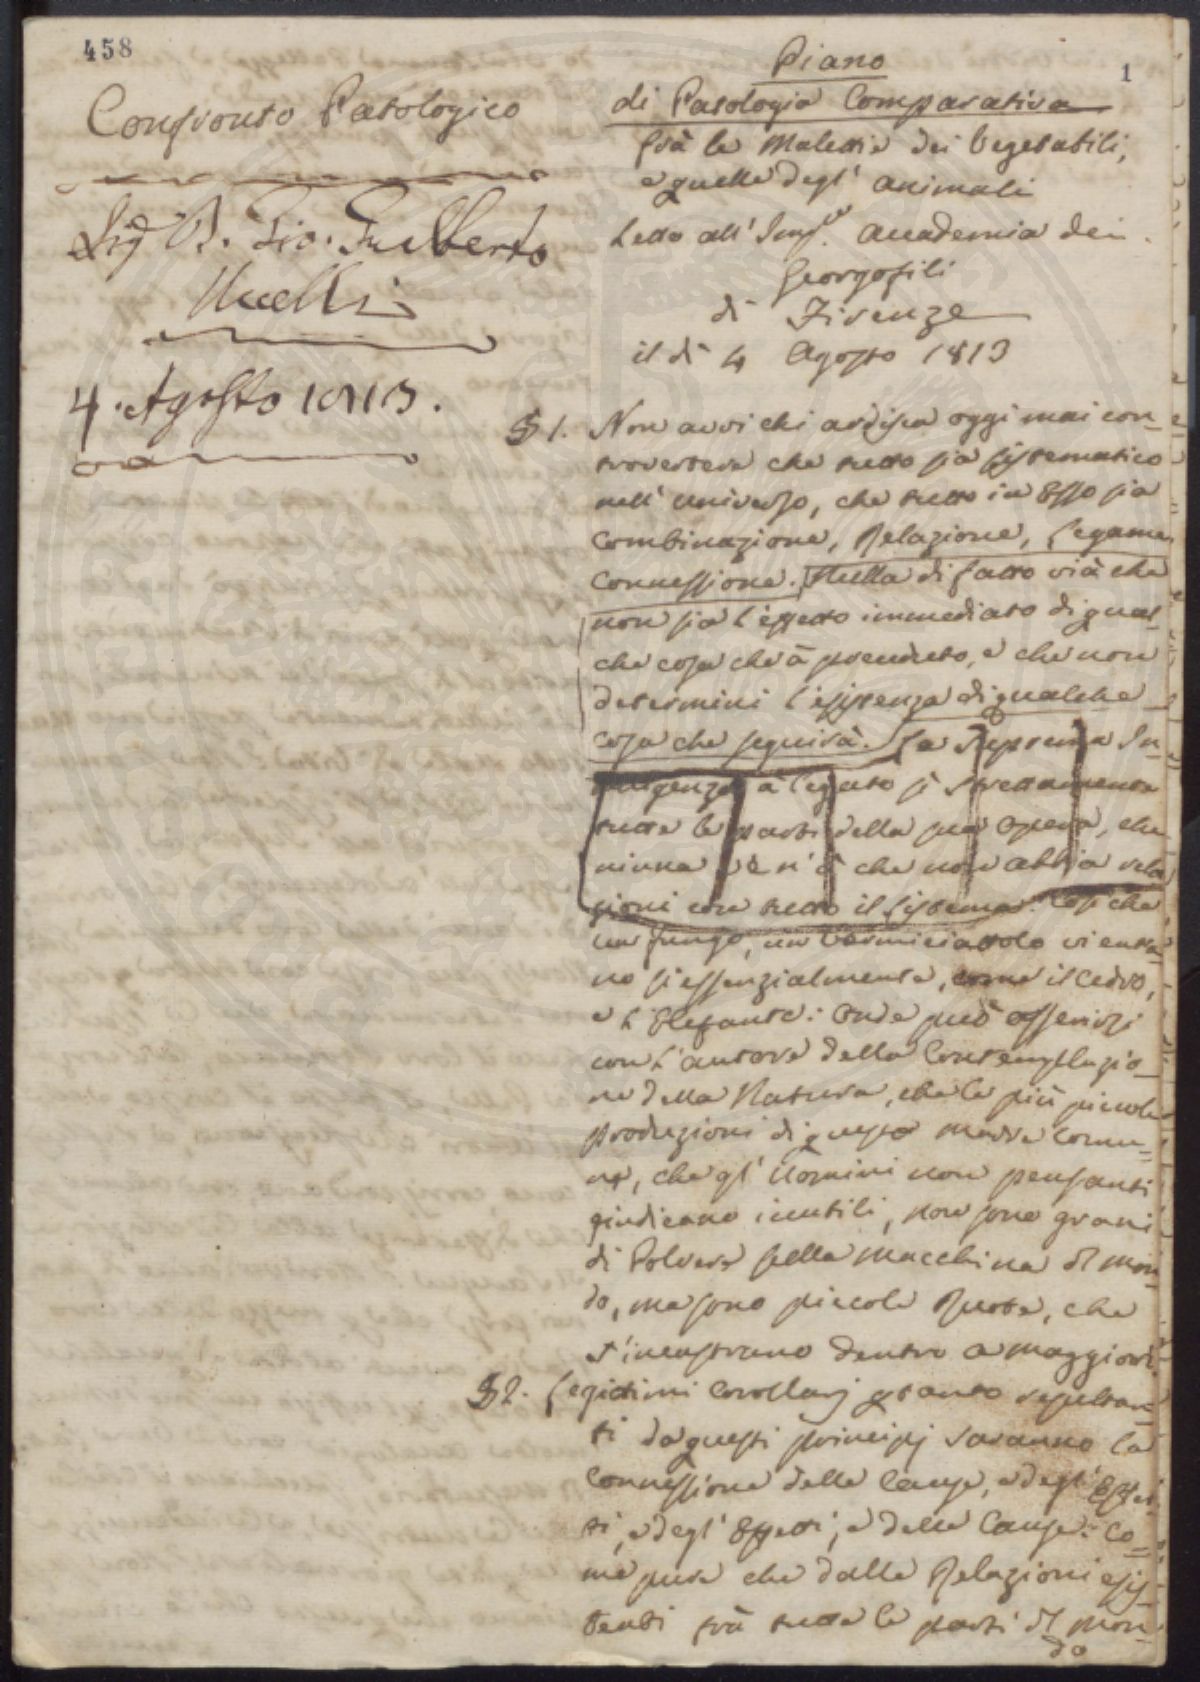 458
Confronto Patologico
Sig.r D. Gio. Gualberto
Uccelli
4. Agosto 1813.
1
Piano
di Patologia Comparativa
frà le Malattie dei Vegetabili,
e quelle degl' animali
Letto all' Imp. Accademia dei
Georgofili
di Firenze
il dì 4 Agosto 1813
§ 1. Non avvi chi ardisca oggi mai con-
trovertere che tutto sia sistematico
nell' Universo, che tutto in Esso sia
Combinazione, Relazione, Legame
Connessione. Nulla di fatto vi à che
non sia l'effetto immediato di qual-
che cosa che à preceduto, e che non
determini l'esistenza di qualche
cosa che seguirà. La Suprema In-
telligenza à legato sì strettamente
tutte le parti della sua Opera, che
niuna ve n'è che non abbia rela
zioni con tutto il sistema. Così che
un fungo, un Vermiciattolo vi entra-
no sì essenzialmente, come il Cedro,
e l'Elefante: Onde può asserirsi
con l'autore della Contemplazio-
ne della Natura, che le più piccole
produzioni di questa Madre Comu-
ne, che gl' Uomini non pensanti
giudicano inutili, non sono grani
di Polvere sulla Macchina del Mon-
do, ma sono piccole Ruote, che
s'incastrano dentro a maggiori.
§ 2. Legittimi Corollarj pertanto resultan-
ti da questi principj saranno la
Connessione delle Cause, e degl' Effet-
ti, e degl' Effetti, e delle Cause: Co-
me pure che dalle Relazioni esis-
tenti frà tutte le parti del Mon-
do